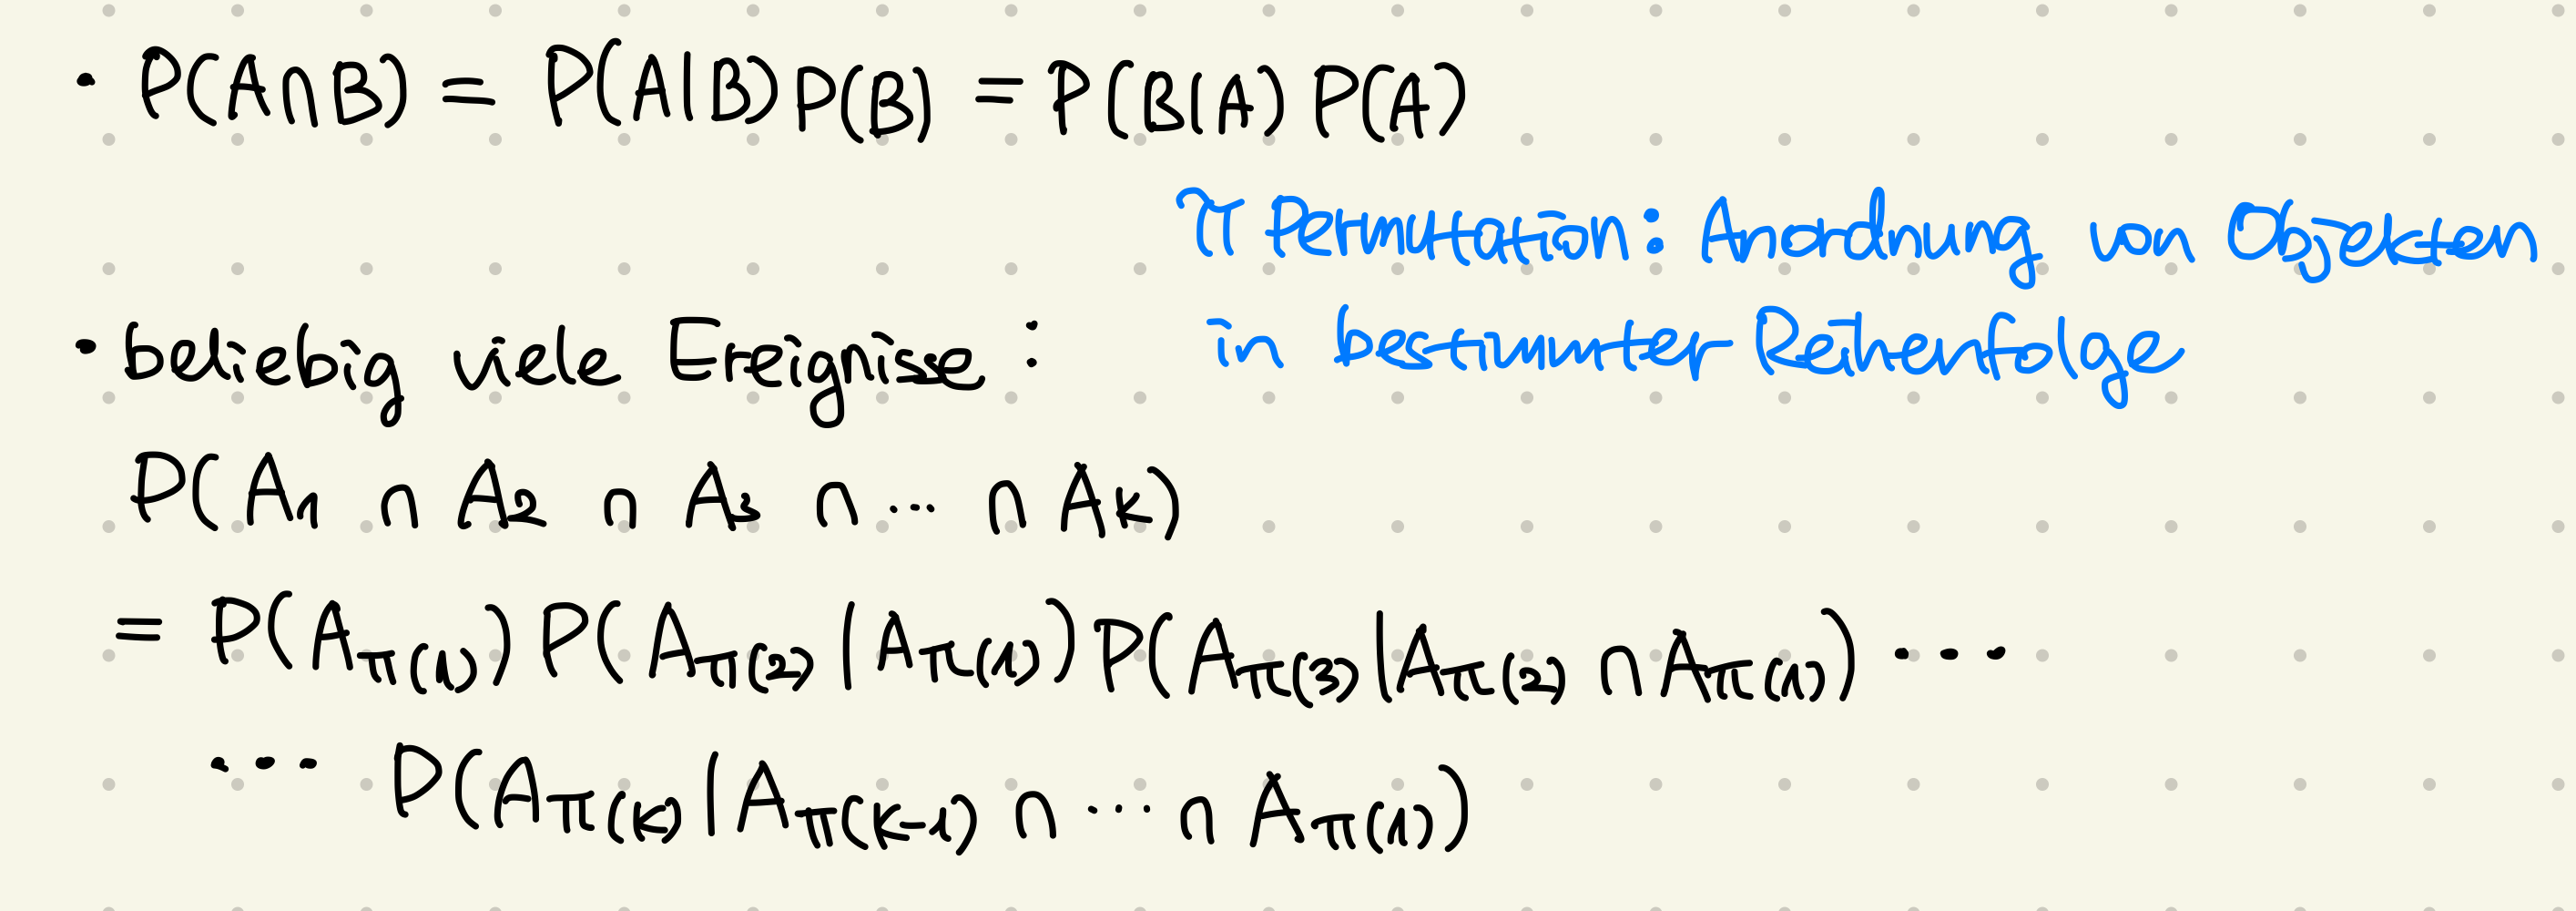 · P(A∩B) = P(A|B)P(B) = P(B|A) P(A)
π Permutation: Anordnung von Objekten
in bestimmter Reihenfolge
· beliebig viele Ereignisse :
P(A₁ ∩ A₂ ∩ A₃ ∩ ... ∩ Aₖ)
= P(A_π(1)) P(A_π(2) | A_π(1)) P(A_π(3) | A_π(2) ∩ A_π(1)) ...
... P(A_π(k) | A_π(k-1) ∩ ... ∩ A_π(1))